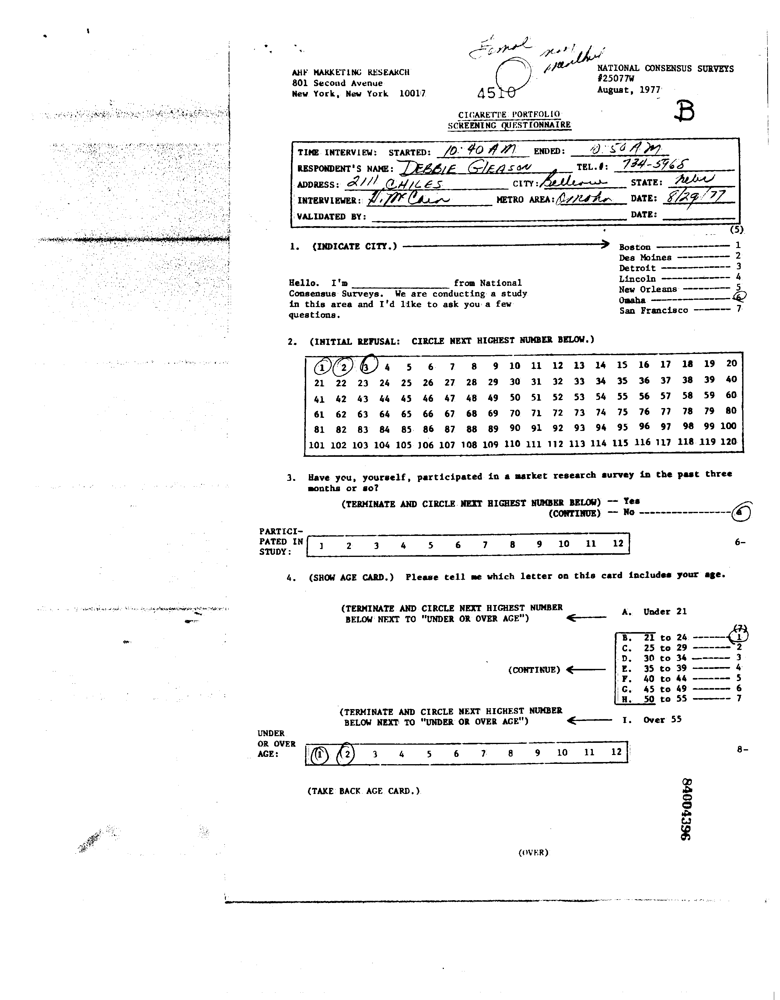 Femal non menthol
AHF MARKETING RESEARCH
801 Second Avenue
New York, New York 10017
4510
NATIONAL CONSENSUS SURVEYS
#25077W
August, 1977
B
CIGARETTE PORTFOLIO
SCREENING QUESTIONNAIRE
TIME INTERVIEW: STARTED: 10:40 AM ENDED: 10:50 AM
RESPONDENT'S NAME: DEBBIE GLEASON TEL.#: 734-5965
ADDRESS: 2111 CHILES CITY: Bellevue STATE: Nebr
INTERVIEWER: H. McCain METRO AREA: Omaha DATE: 8/29/77
VALIDATED BY: DATE:
(5)
1. (INDICATE CITY.)
Boston 1
Des Moines 2
Detroit 3
Lincoln 4
New Orleans 5
Omaha 6
San Francisco 7
Hello. I'm ____________ from National
Consensus Surveys. We are conducting a study
in this area and I'd like to ask you a few
questions.
2. (INITIAL REFUSAL: CIRCLE NEXT HIGHEST NUMBER BELOW.)
1 2 3 4 5 6 7 8 9 10 11 12 13 14 15 16 17 18 19 20
21 22 23 24 25 26 27 28 29 30 31 32 33 34 35 36 37 38 39 40
41 42 43 44 45 46 47 48 49 50 51 52 53 54 55 56 57 58 59 60
61 62 63 64 65 66 67 68 69 70 71 72 73 74 75 76 77 78 79 80
81 82 83 84 85 86 87 88 89 90 91 92 93 94 95 96 97 98 99 100
101 102 103 104 105 106 107 108 109 110 111 112 113 114 115 116 117 118 119 120
3. Have you, yourself, participated in a market research survey in the past three
months or so?
(TERMINATE AND CIRCLE NEXT HIGHEST NUMBER BELOW) -- Yes
(CONTINUE) -- No
PARTICI-
PATED IN
STUDY:
1 2 3 4 5 6 7 8 9 10 11 12
6-
4. (SHOW AGE CARD.) Please tell me which letter on this card includes your age.
(TERMINATE AND CIRCLE NEXT HIGHEST NUMBER
BELOW NEXT TO "UNDER OR OVER AGE")
A. Under 21
(7)
B. 21 to 24 1
C. 25 to 29 2
D. 30 to 34 3
(CONTINUE)
E. 35 to 39 4
F. 40 to 44 5
G. 45 to 49 6
H. 50 to 55 7
(TERMINATE AND CIRCLE NEXT HIGHEST NUMBER
BELOW NEXT TO "UNDER OR OVER AGE")
I. Over 55
UNDER
OR OVER
AGE:
1 2 3 4 5 6 7 8 9 10 11 12
8-
(TAKE BACK AGE CARD.)
84004396
(OVER)